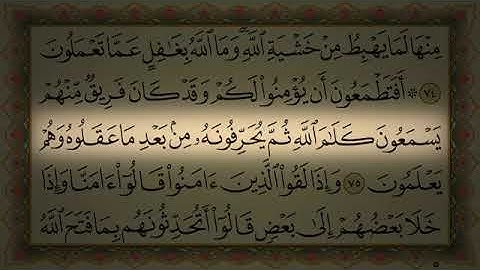 مِنْهَا لَمَا يَهْبِطُ مِنْ خَشْيَةِ ٱللَّهِۗ وَمَا ٱللَّهُ بِغَٰفِلٍ عَمَّا تَعْمَلُونَ
٧٤ ۞ أَفَتَطْمَعُونَ أَن يُؤْمِنُوا۟ لَكُمْ وَقَدْ كَانَ فَرِيقٌ مِّنْهُمْ
يَسْمَعُونَ كَلَٰمَ ٱللَّهِ ثُمَّ يُحَرِّفُونَهُۥ مِنۢ بَعْدِ مَا عَقَلُوهُ وَهُمْ
يَعْلَمُونَ ٧٥ وَإِذَا لَقُوا۟ ٱلَّذِينَ ءَامَنُوا۟ قَالُوٓا۟ ءَامَنَّا وَإِذَا
خَلَا بَعْضُهُمْ إِلَىٰ بَعْضٍ قَالُوٓا۟ أَتُحَدِّثُونَهُم بِمَا فَتَحَ ٱللَّهُ